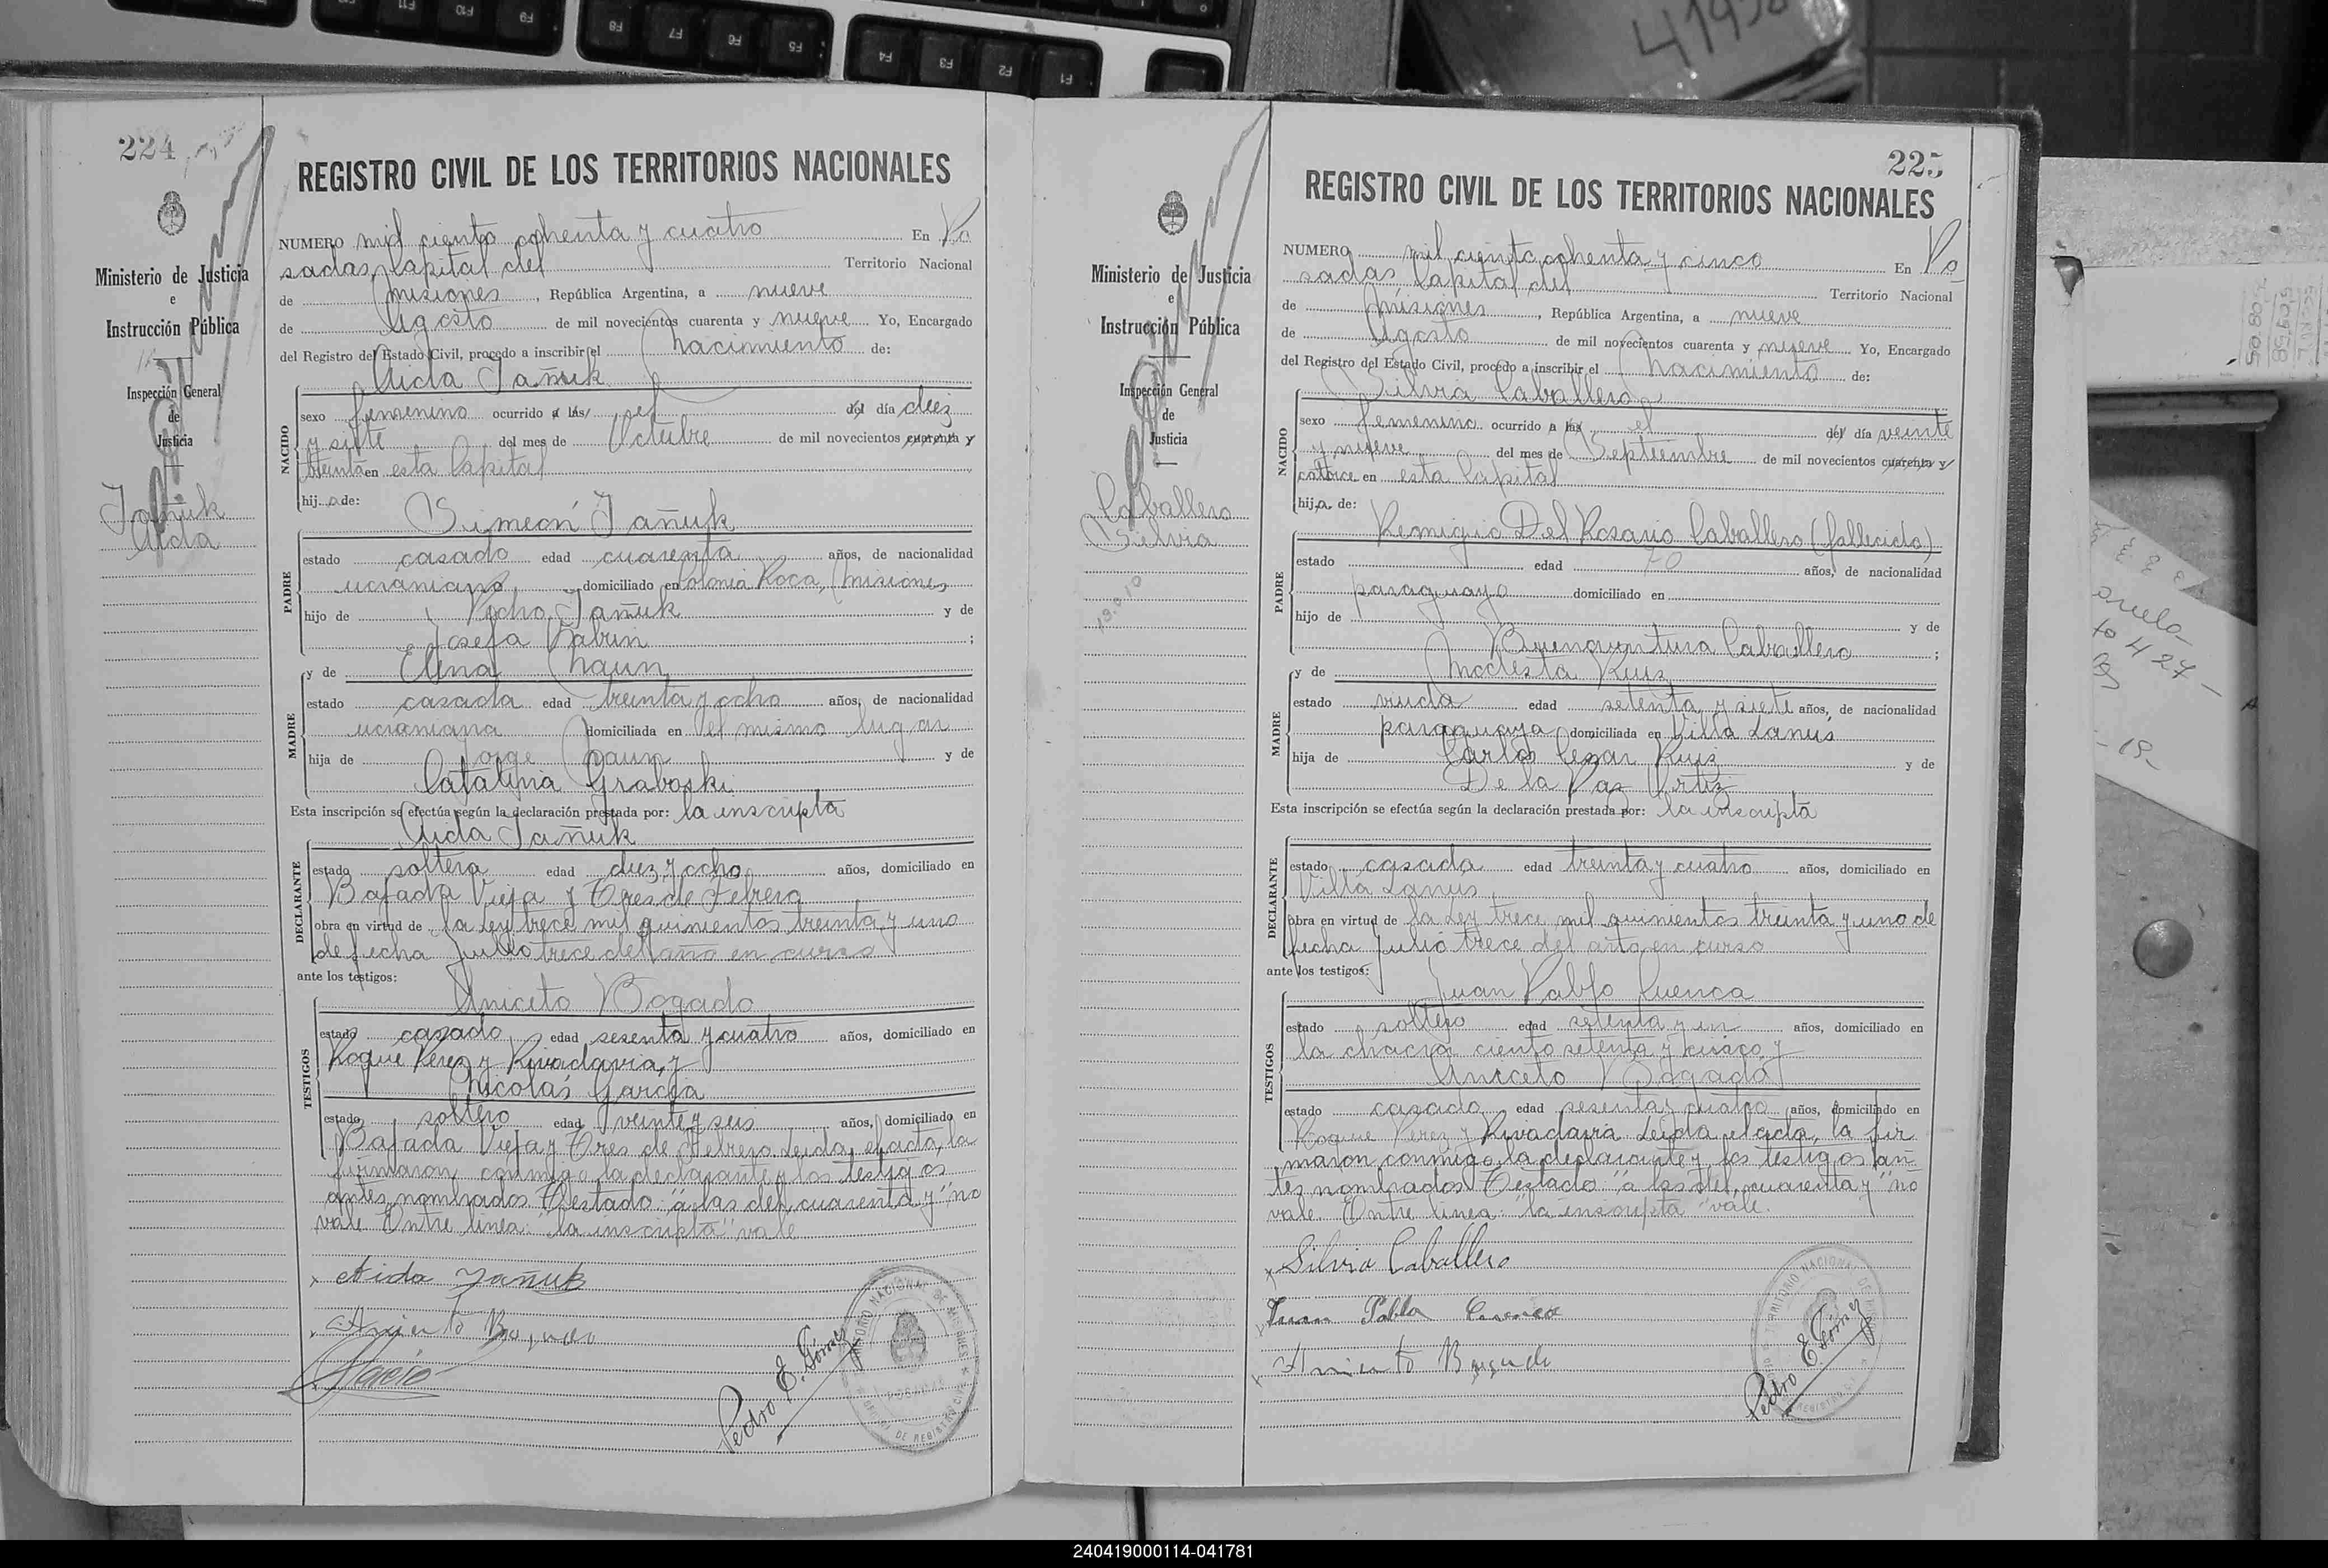 224
REGISTRO CIVIL DE LOS TERRITORIOS NACIONALES
Ministerio de Justicia
e
Instrucción Pública
Inspección General
de
Justicia
Jañuk
Aida
NUMERO mil ciento ochenta y cuatro En Po
sadas, Capital del Territorio Nacional
de Misiones, República Argentina, a nueve
de Agosto de mil novecientos cuarenta y nueve Yo, Encargado
del Registro del Estado Civil, procedo a inscribir el nacimiento de:
Aida Jañuk
NACIDO
sexo femenino ocurrido a las el del día diez
y siete del mes de Octubre de mil novecientos cuarenta y
treinta en esta Capital
hija de:
Simeón Jañuk
PADRE
estado casado edad cuarenta años, de nacionalidad
ucraniano domiciliado en Colonia Roca, (Misiones)
hijo de Jañuk y de
Josefa ;
y de Elena
MADRE
estado casada edad treinta y ocho años, de nacionalidad
ucraniana domiciliada en el mismo lugar
hija de Jorge y de
Catalina Graboski
Esta inscripción se efectúa según la declaración prestada por: la inscripta
Aida Jañuk
DECLARANTE
estado soltera edad diez y ocho años, domiciliado en
Bajada Vieja y Tres de Febrero
obra en virtud de la Ley trece mil quinientos treinta y uno
de fecha Julio trece del año en curso
ante los testigos:
Aniceto Bogado
TESTIGOS
estado casado edad sesenta y cuatro años, domiciliado en
Roque Perez y Rivadavia, y
Nicolás García
estado soltero edad veinte y seis años, domiciliado en
Bajada Vieja y Tres de Febrero. Leida el acta, la
firmaron conmigo la declarante y los testigos
antes nombrados. Testado: "a las del, cuarenta y" no
vale. Entre linea: "la inscripta" vale
Aida Jañuk
Aniceto Bogado
Pedro E. Gómez
225
REGISTRO CIVIL DE LOS TERRITORIOS NACIONALES
Ministerio de Justicia
e
Instrucción Pública
Inspección General
de
Justicia
Caballero
Silvia
NUMERO mil ciento ochenta y cinco En Po
sadas Capital del Territorio Nacional
de Misiones, República Argentina, a nueve
de Agosto de mil novecientos cuarenta y nueve Yo, Encargado
del Registro del Estado Civil, procedo a inscribir el nacimiento de:
Silvia Caballero
NACIDO
sexo femenino ocurrido a las el del día veinte
y nueve del mes de Septiembre de mil novecientos cuarenta y
catorce en esta Capital
hija de:
Remigio Del Rosario Caballero (fallecido)
PADRE
estado edad 70 años, de nacionalidad
paraguayo domiciliado en
hijo de y de
Buenaventura Caballero ;
y de Modesta Ruiz
MADRE
estado viuda edad setenta y siete años, de nacionalidad
paraguaya domiciliada en Villa Lanús
hija de Carlos Cesar Ruiz y de
De la Paz Ortiz
Esta inscripción se efectúa según la declaración prestada por: la inscripta
DECLARANTE
estado casada edad treinta y cuatro años, domiciliado en
Villa Lanús
obra en virtud de la Ley trece mil quinientos treinta y uno de
fecha Julio trece del año en curso
ante los testigos:
Juan Pablo Cuenca
TESTIGOS
estado soltero edad setenta y un años, domiciliado en
la chacra ciento setenta y cinco, y
Aniceto Bogado
estado casado edad sesenta y cuatro años, domiciliado en
Roque Perez y Rivadavia Leida el acta, la fir
maron conmigo, la declarante y los testigos an
tes nombrados. Testado: "a las del, cuarenta y" no
vale. Entre linea: "la inscripta" vale.
Silvia Caballero
Juan Pablo Cuenca
Aniceto Bogado
Pedro E. Gómez
240419000114-041781